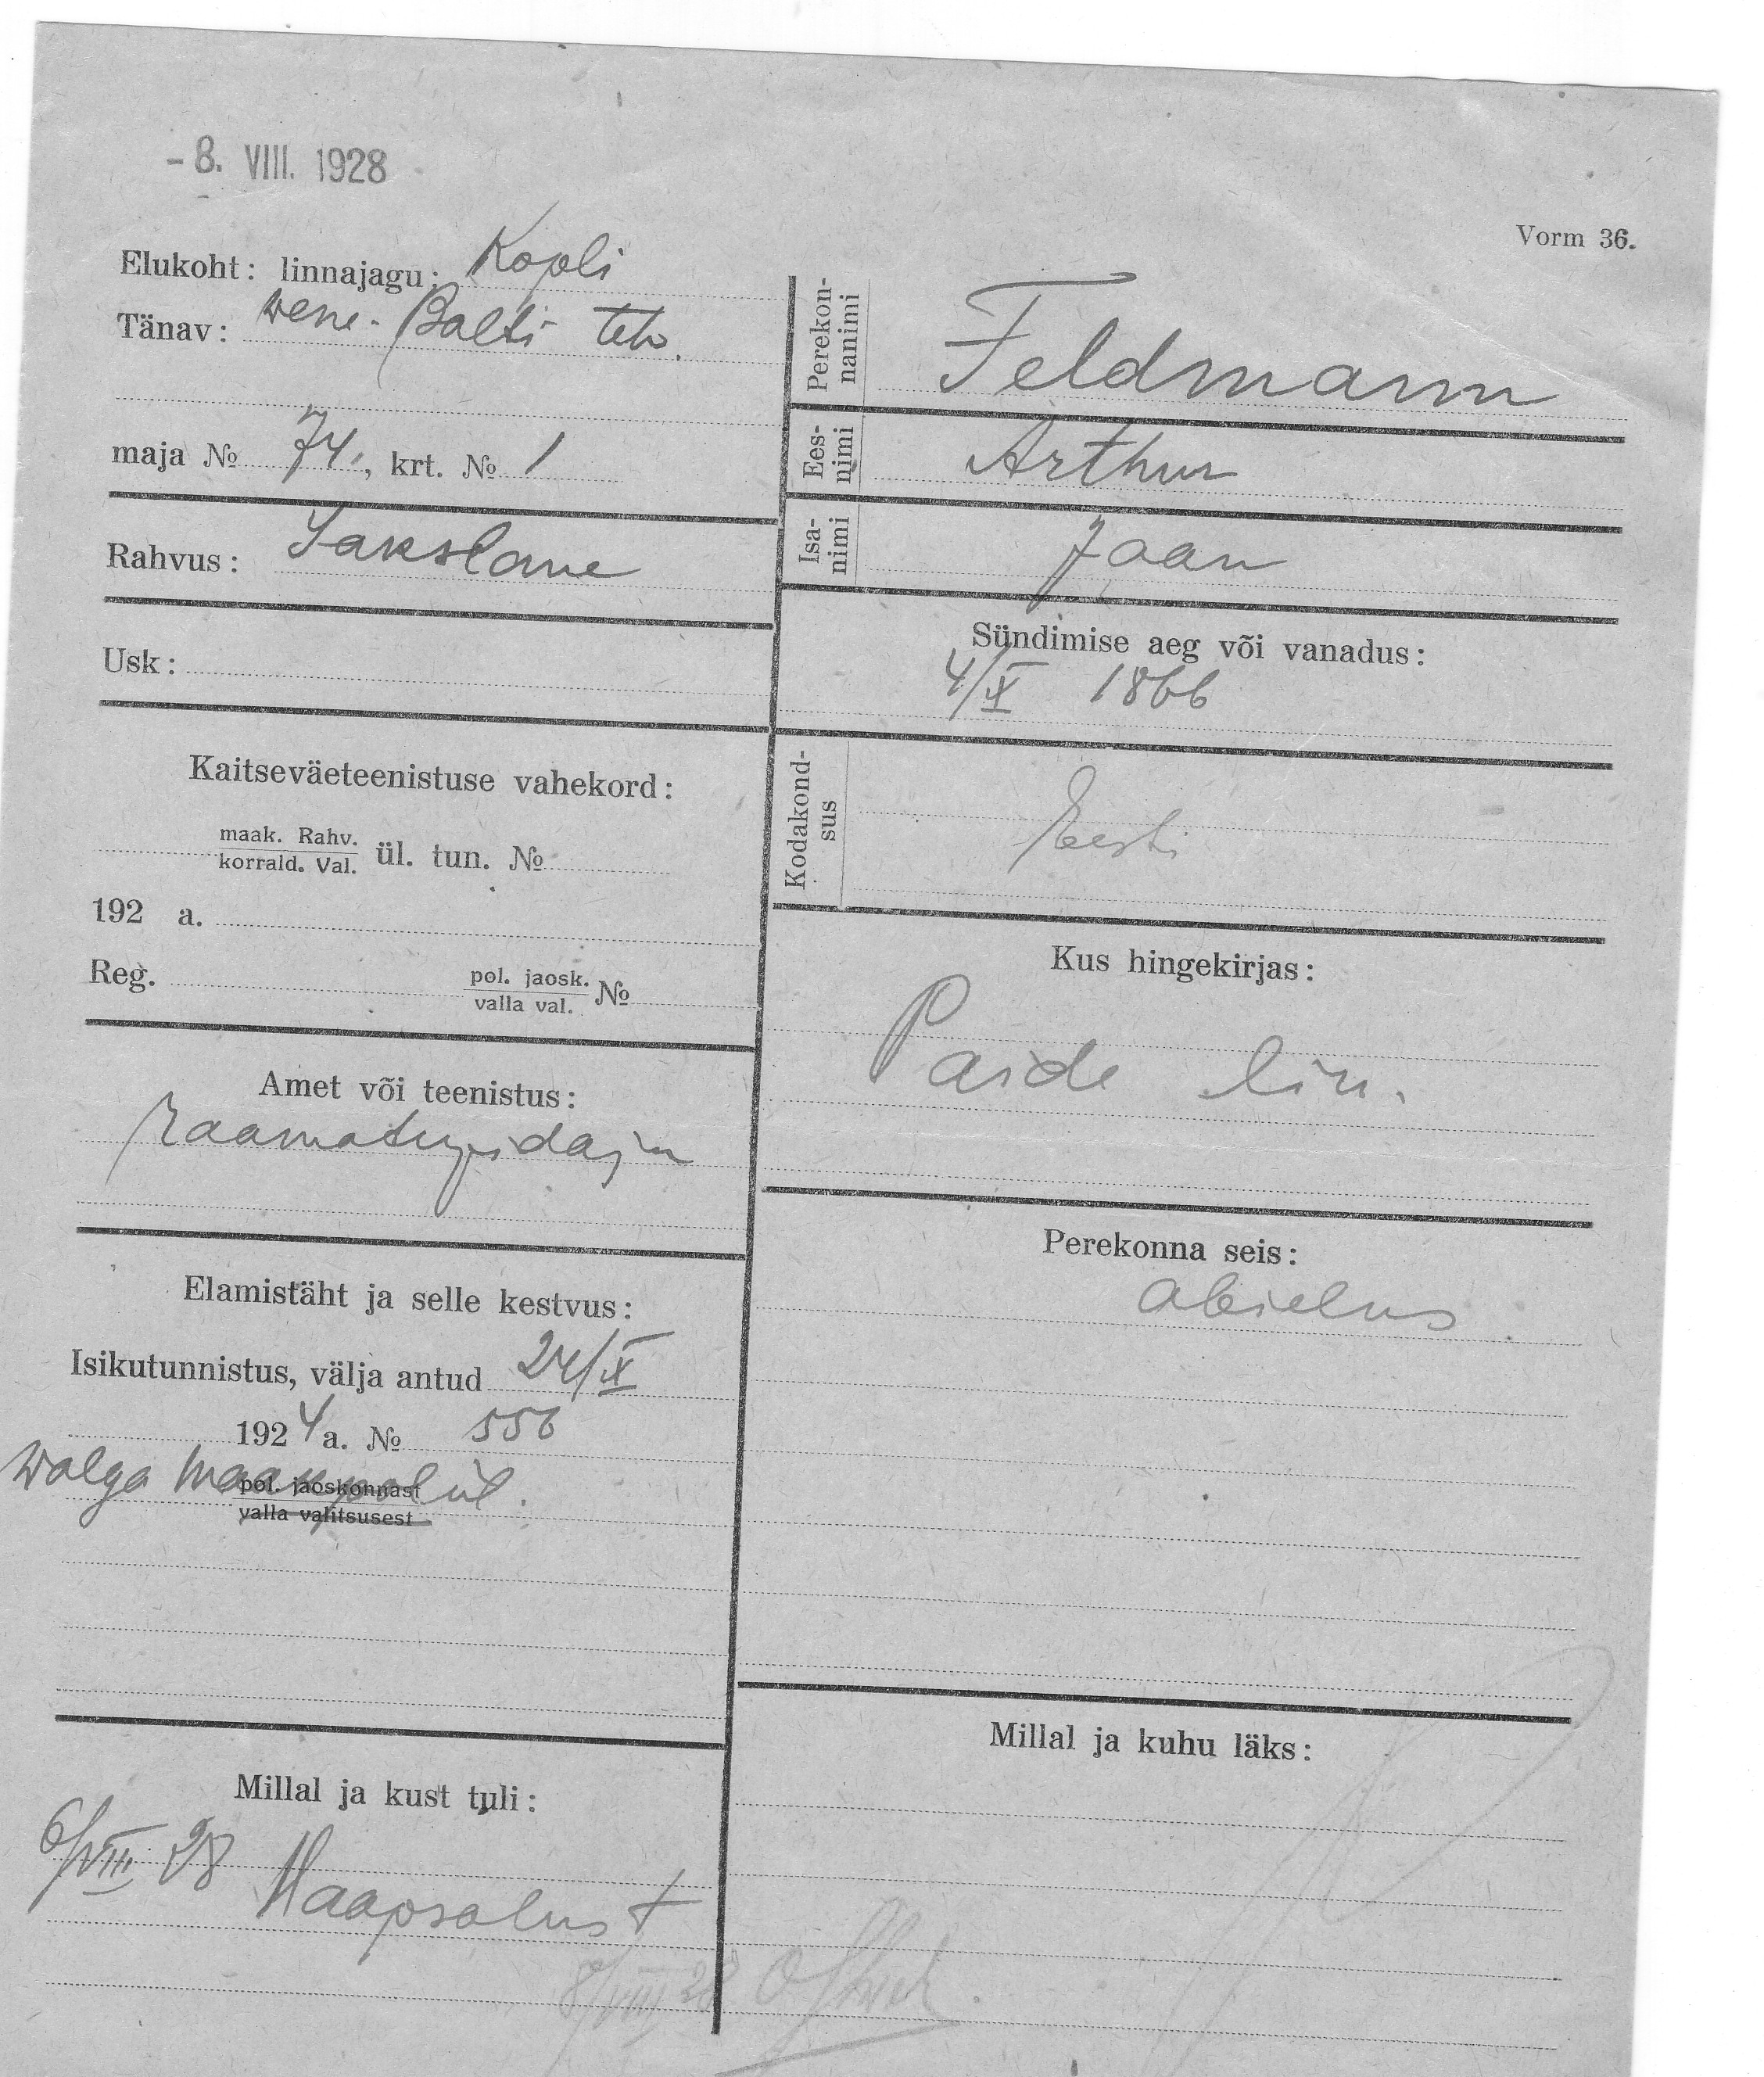 - 8. VIII. 1928
Vorm 36.
Elukoht: linnajagu: Kopli
Tänav: Wene-Balti teh.
maja № 74, krt. № 1
Rahvus: Sakslane
Usk:
Kaitseväeteenistuse vahekord:
maak. Rahv.
korrald. Val. ül. tun. №
192 a.
Reg. pol. jaosk.
valla val. №
Amet või teenistus:
raamatupidaja
Elamistäht ja selle kestvus:
Isikutunnistus, välja antud 24/IX
1924 a. № 556
Walga maa pol ül.
pol. jaoskonnast
valla valitsusest
Millal ja kust tuli:
6/VIII 28 Haapsalust
Perekon-
nanimi Feldmann
Ees-
nimi Arthur
Isa-
nimi Jaan
Sündimise aeg või vanadus:
4/IX 1866
Kodakond-
sus Eesti
Kus hingekirjas:
Paide lin.
Perekonna seis:
abielus.
Millal ja kuhu läks:
8/VIII 28